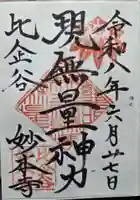 令和八年六月廿七日
現無量神力
比企谷
妙本寺